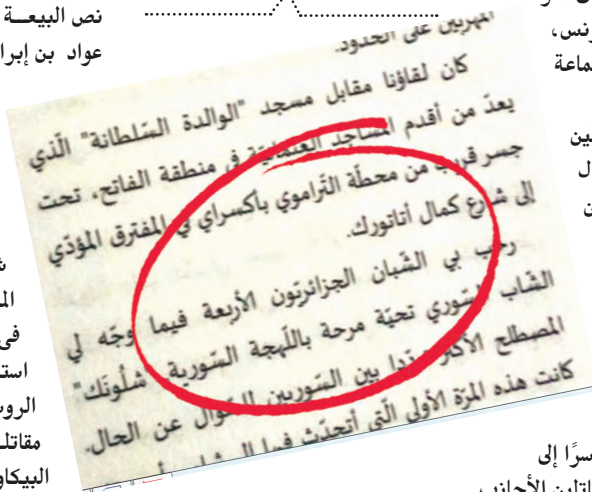 نص البيعــة
عواد بن إبرا
ونس،
ماعة
ين
ال
ن
المهربين على الحدود.
كان لقاؤنا مقابل مسجد "الوالدة السّلطانة" الّذي
يعدّ من أقدم المساجد العثمانيّة في منطقة الفاتح، تحت
جسر قريب من محطّة التّراموي بأكسراي في المفترق المؤدّي
إلى شارع كمال أتاتورك.
رحّب بي الشّبان الجزائريّون الأربعة فيما وجّه لي
الشّاب السّوري تحيّة مرحة باللّهجة السّورية "شلُونَك"
المصطلح الأكثر بين السّوريين للسّؤال عن الحال.
كانت هذه المرّة الأولى الّتي أتحدّث فيها
ش
الم
فى
است
الروس
مقاتلـ
البيكاو
سرًا إلى
اتلين الأجانب